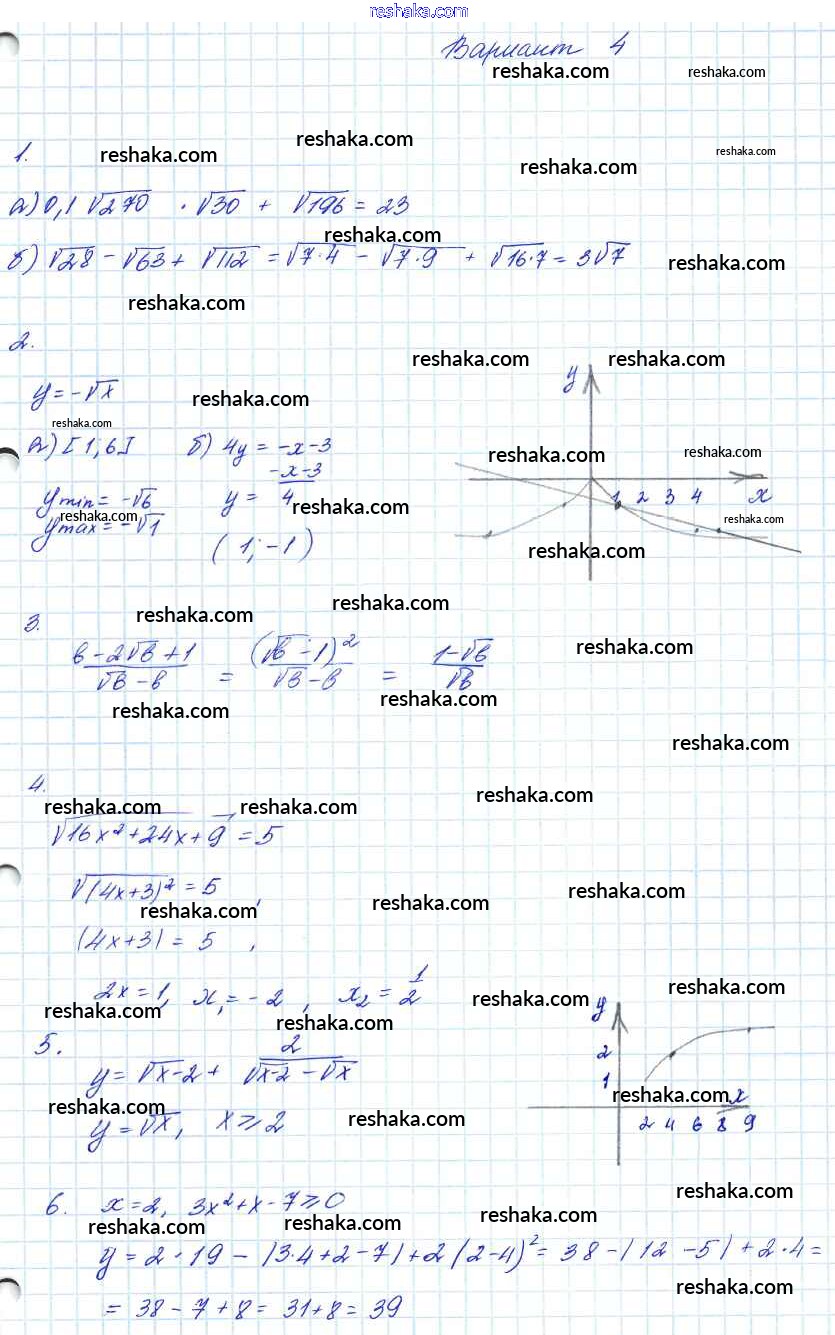 reshaka.com
Вариант 4
reshaka.com reshaka.com
1.
reshaka.com reshaka.com reshaka.com reshaka.com
а) 0,1 √270 · √30 + √196 = 23
reshaka.com
б) √28 - √63 + √112 = √7·4 - √7·9 + √16·7 = 3√7
reshaka.com
reshaka.com
2.
reshaka.com reshaka.com
y = -√x
reshaka.com
reshaka.com
а) [1; 6] б) 4y = -x-3
y min = -√6 y = -x-3 / 4
reshaka.com reshaka.com
y max = -√1
(1; -1)
y
reshaka.com reshaka.com
1 2 3 4 x
reshaka.com
reshaka.com
3.
reshaka.com reshaka.com
b - 2√b + 1 / √b - b = (√b - 1)² / √b - b = 1 - √b / √b
reshaka.com
reshaka.com reshaka.com
reshaka.com
4.
reshaka.com reshaka.com reshaka.com
√16x² + 24x + 9 = 5
√(4x+3)² = 5,
reshaka.com reshaka.com reshaka.com
|4x+3| = 5,
2x = 1, x₁ = -2, x₂ = 1/2
reshaka.com reshaka.com reshaka.com
reshaka.com
5.
y = √x-2 + 2 / √x-2 - √x
reshaka.com reshaka.com
y = √x, x ⩾ 2
y
2
1
reshaka.com x
2 4 6 8 9
reshaka.com
6. x = 2, 3x² + x - 7 ⩾ 0
reshaka.com reshaka.com reshaka.com
y = 2·19 - |3·4+2-7| + 2(2-4)² = 38 - |12-5| + 2·4 =
reshaka.com
= 38 - 7 + 8 = 31 + 8 = 39